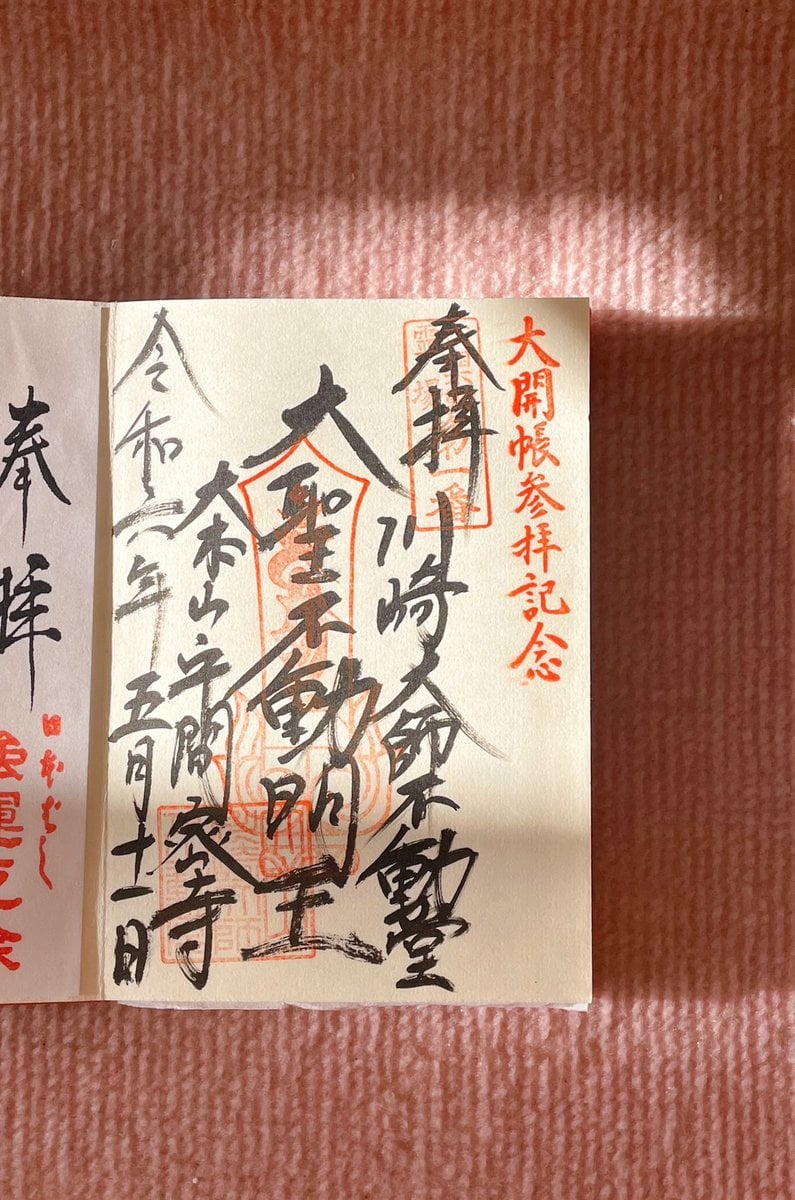 大開帳参拝記念
奉拝 川崎大師不動堂
霊場第一番
大聖不動明王
大本山平間寺
令和六年五月十一日
奉拝
日本ばし